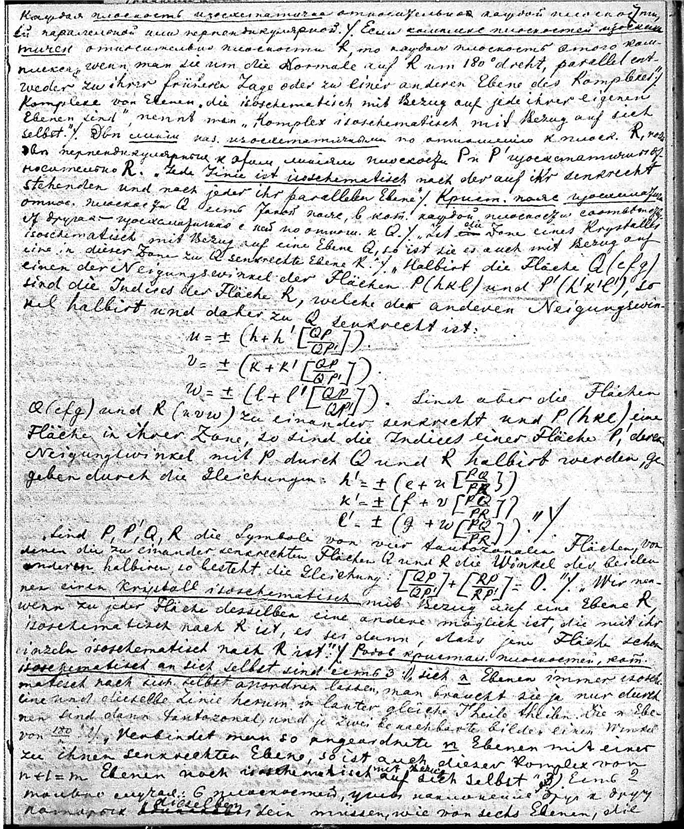 Каждая плоскость изосхематична относительно каждой плоскости,
ей параллельной или перпендикулярной. / Если комплекс плоскостей изосхема
тичен относительно плоскости R, то каждая плоскость этого ком-
плекса, „wenn man sie um die Normale auf R um 180° dreht, parallel ent-
weder zu ihrer früheren Lage oder zu einer anderen Ebene des Komplexes"/
Komplexe von Ebenen, „die isoschematisch mit Bezug auf jede ihrer eigenen
Ebenen sind" nennt man „Komplex isoschematisch mit Bezug auf sich
selbst"/. Две линии наз. изосхематичными по отношению к плоск. R, если
две перпендикулярных к этим линиям плоскости P и P' изосхематичны от-
носительно R. „Jede Linie ist isoschematisch nach der auf ihr senkrecht
stehenden und nach jeder ihr parallelen Ebene"/. Крист. пояс изосхематичен
относ. плоскости Q есть такой пояс, в кот. каждой плоскости соответствует
другая изосхематичная с ней по относ. к Q./ „Ist die Zone eines Krystalles
isoschematisch mit Bezug auf eine Ebene Q, so ist sie es auch mit Bezug auf
eine in dieser Zone zu Q senkrechte Ebene R."/ „Halbirt die Fläche Q(efg)
einen der Neigungswinkel der Flächen P(hkl) und P'(h'k'l'), so
sind die Indices der Fläche R, welche den anderen Neigungswin-
kel halbirt und daher zu Q senkrecht ist:
u = ± (h + h' [QP/QP'])
v = ± (k + k' [QP/QP'])
w = ± (l + l' [QP/QP']). Sind aber die Flächen
Q(efg) und R(uvw) zu einander senkrecht und P(hkl) eine
Fläche in ihrer Zone, so sind die Indices einer Fläche P', deren
Neigungswinkel mit P durch Q und R halbirt werden, ge-
geben durch die Gleichungen: h' = ± (e + u [PQ/PR])
k' = ± (f + v [PQ/PR])
l' = ± (g + w [PQ/PR])."/
„Sind P, P', Q, R die Symbole von vier tautozonalen Flächen, von
denen die zu einander senkrechten Flächen Q und R die Winkel der beiden
anderen halbiren, so besteht die Gleichung: [QP/QP'] + [RP/RP'] = 0."/. „Wir nen-
nen einen Krystall isoschematisch mit Bezug auf eine Ebene R,
wenn zu jeder Fläche desselben eine andere möglich ist, die mit ihr
isoschematisch nach R ist, es sei denn, dass jene Fläche schon
einzeln isoschematisch nach R ist"/ кристал. плоскостей,
isoschematisch an sich selbst sind есть 3: 1, sich n Ebenen immer isosche-
matisch nach sich selbst anordnen lassen, man braucht sie ja nur durch
eine und dieselbe Linie herum in lauter gleiche Theile theilen. Die n Ebe-
nen sind dann tautozonal, und je zwei benachbarte bilden einen Winkel
von 180/n"/, „Verbindet man so angeordnete n Ebenen mit einer
zu ihnen senkrechten Ebene, so ist auch dieser Komplex von
n+1=m Ebenen noch isoschematisch mit Bezug auf sich selbst" 3) Есть 2
случая: 6 плоскостей, наклонение друг к другу
которых dieselben sein müssen, wie von sechs Ebenen, die